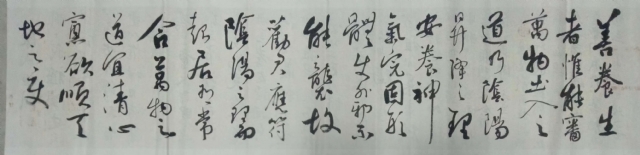 善養生
者惟能審
萬物出入之
道乃陰陽
昇降之理
安養神
氣完固形
體使外邪不
能襲故
勸君應符
陰陽之理而
起居有常
合萬物之
道宜清心
寡欲順天
地之之变